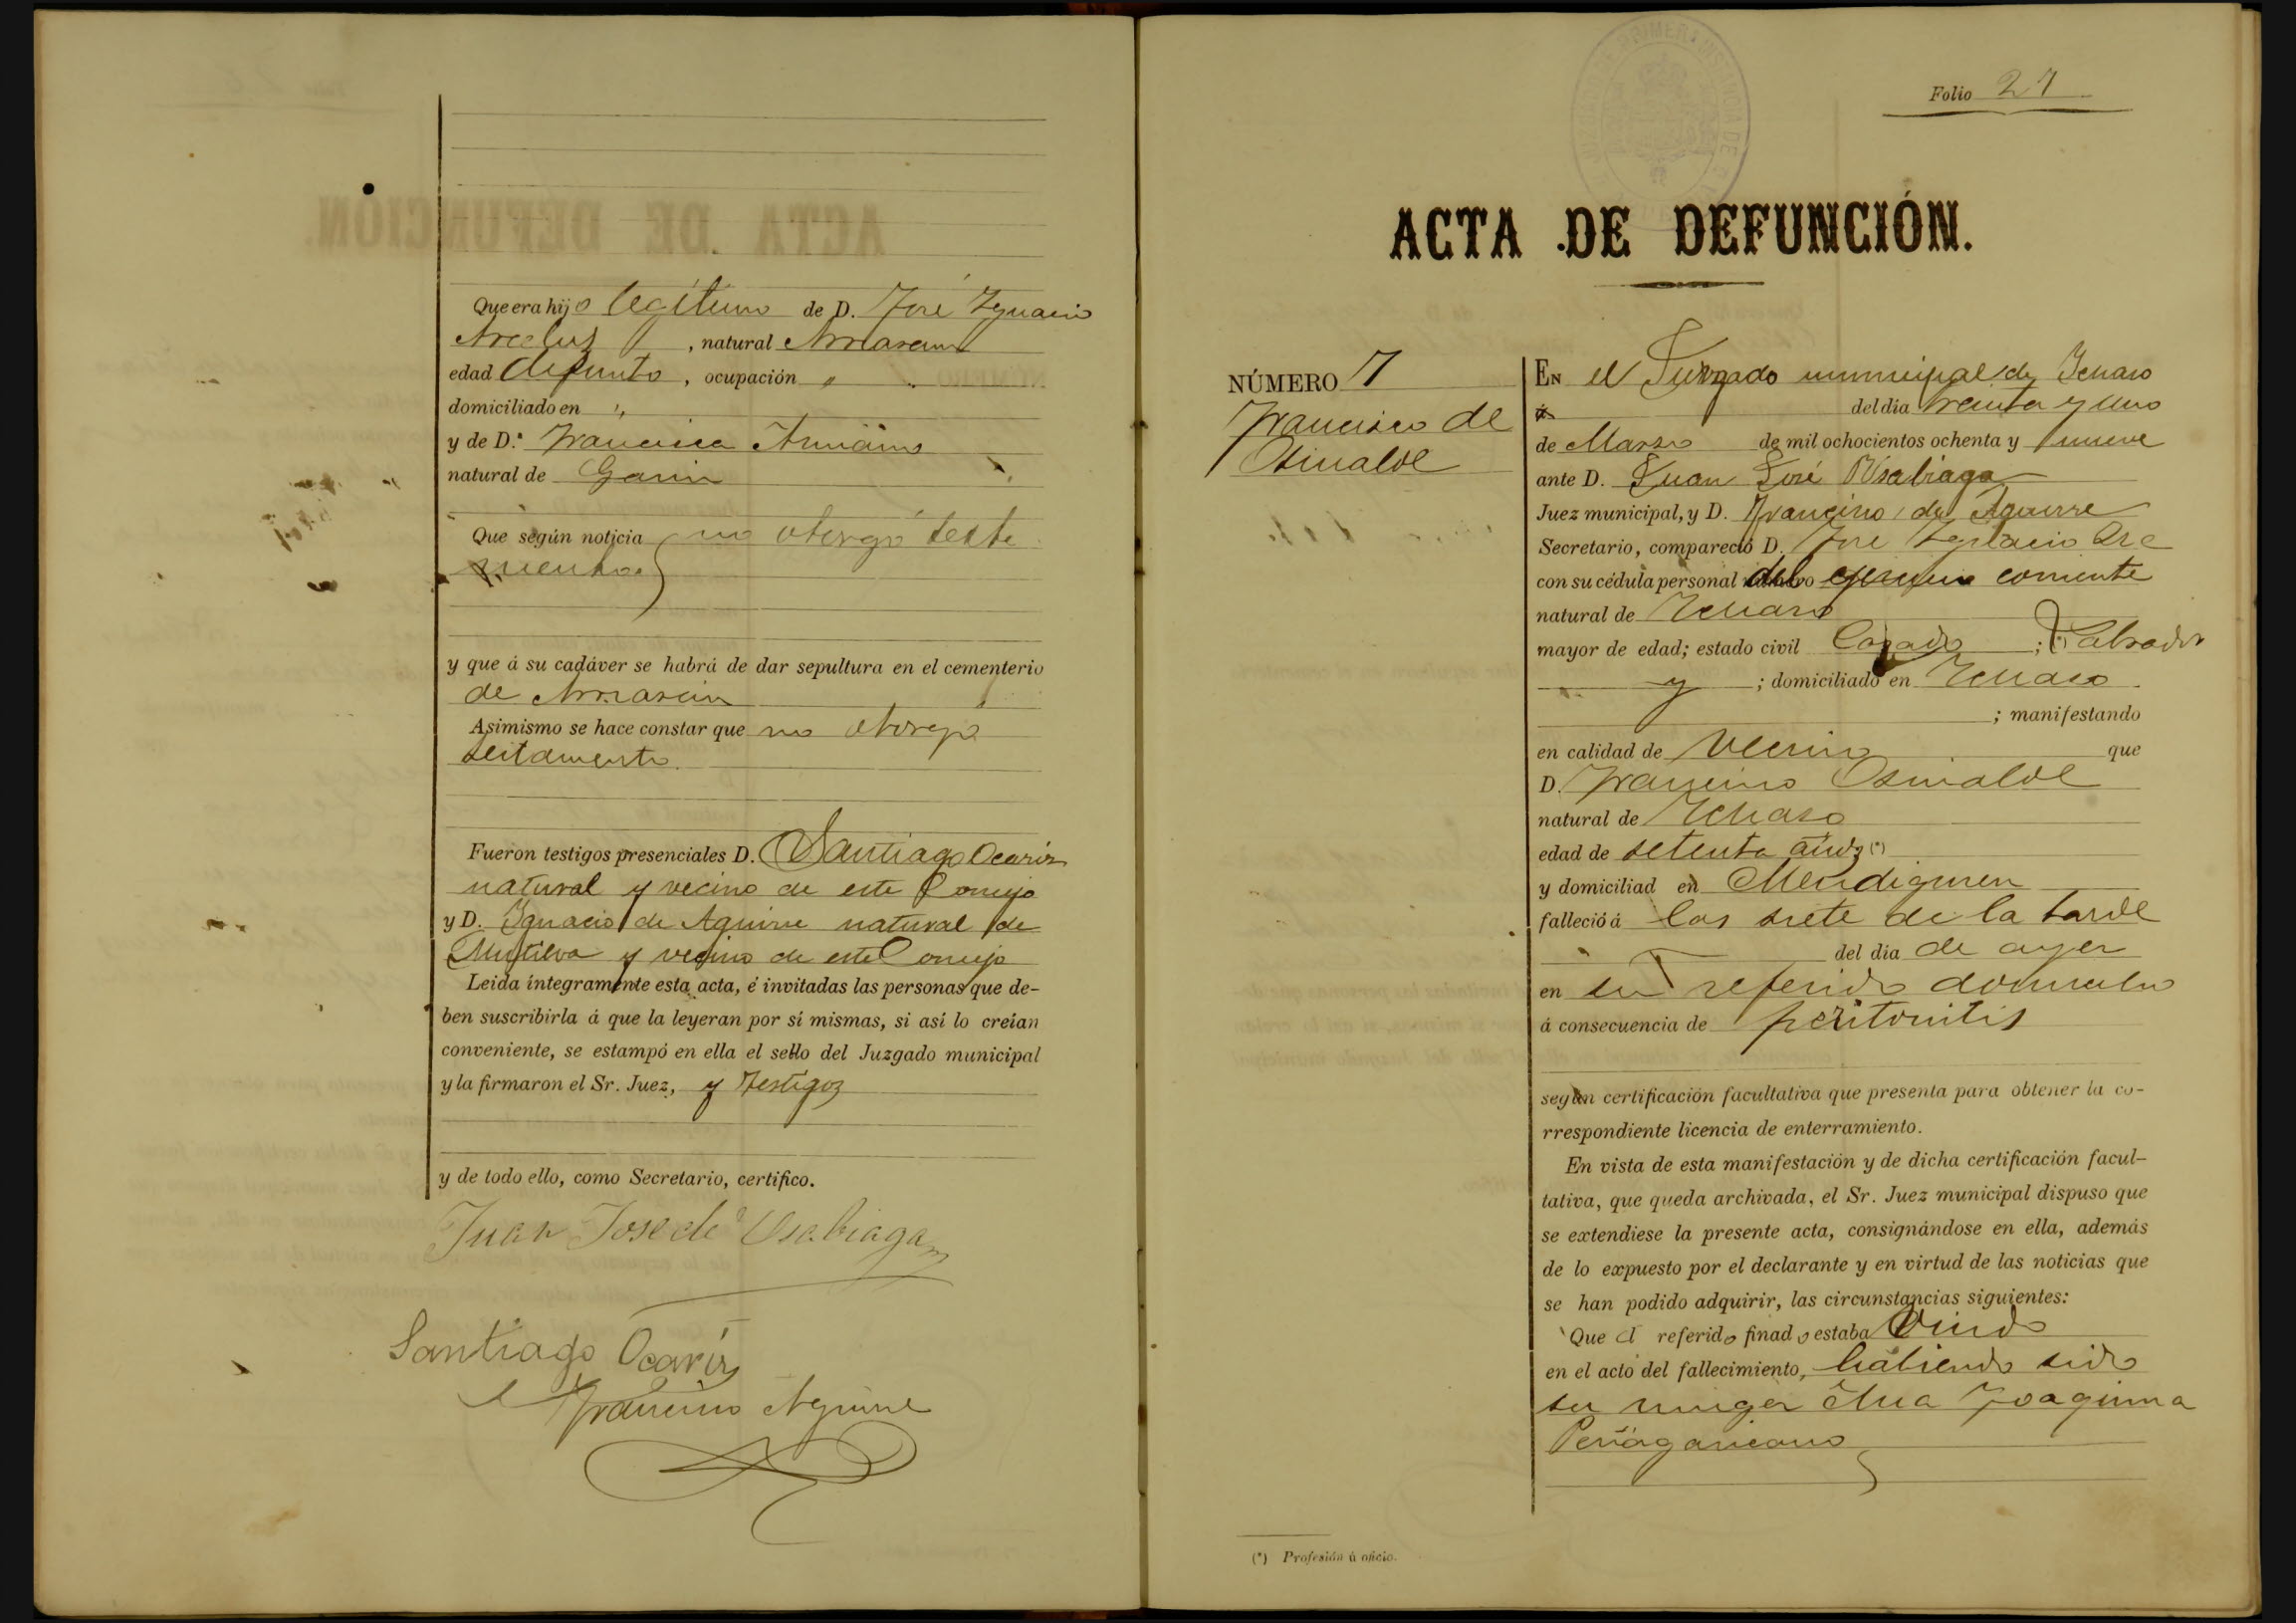 Que era hijo legítimo de D. José Ygnacio
Arcelus, natural Arriaran
edad difunto, ocupación "
domiciliado en "
y de D.ª Francisca
natural de Garin
Que según noticia no otorgó testa
mento
y que á su cadáver se habrá de dar sepultura en el cementerio
de Arriaran
Asimismo se hace constar que no otorgó
testamento.
Fueron testigos presenciales D. Santiago Ocariz
natural y vecino de este Concejo
y D. Ygnacio de Aguirre natural de
Mutiloa y vecino de este Concejo
Leida íntegramente esta acta, é invitadas las personas que de-
ben suscribirla á que la leyeran por sí mismas, si así lo creían
conveniente, se estampó en ella el sello del Juzgado municipal
y la firmaron el Sr. Juez, y Testigos
y de todo ello, como Secretario, certifico.
Juan Jose de Usabiaga
Santiago Ocariz
Francisco Aguirre
Folio 27
ACTA DE DEFUNCIÓN.
NÚMERO 7
Francisco de
Osinalde
EN el Juzgado municipal de Ychaso
á del dia treinta y uno
de Marzo de mil ochocientos ochenta y nueve
ante D. Juan José Usabiaga
Juez municipal, y D. Francisco de Aguirre
Secretario, compareció D. José Ygnacio
con su cédula personal del corriente
natural de Ychaso
mayor de edad; estado civil Casado; (*) Labrador
y; domiciliado en Ychaso
; manifestando
en calidad de Vecino que
D. Francisco Osinalde
natural de Ychaso
edad de setenta años (*)
y domiciliad en Mendiguren
falleció á las siete de la tarde
del dia de ayer
en su referido domicilio
á consecuencia de peritonitis
según certificación facultativa que presenta para obtener la co-
rrespondiente licencia de enterramiento.
En vista de esta manifestación y de dicha certificación facul-
tativa, que queda archivada, el Sr. Juez municipal dispuso que
se extendiese la presente acta, consignándose en ella, además
de lo expuesto por el declarante y en virtud de las noticias que
se han podido adquirir, las circunstancias siguientes:
Que el referido finado estaba Viudo
en el acto del fallecimiento, habiendo sido
su muger Ana Joaquina
Peñagaricano
(*) Profesión ú oficio.